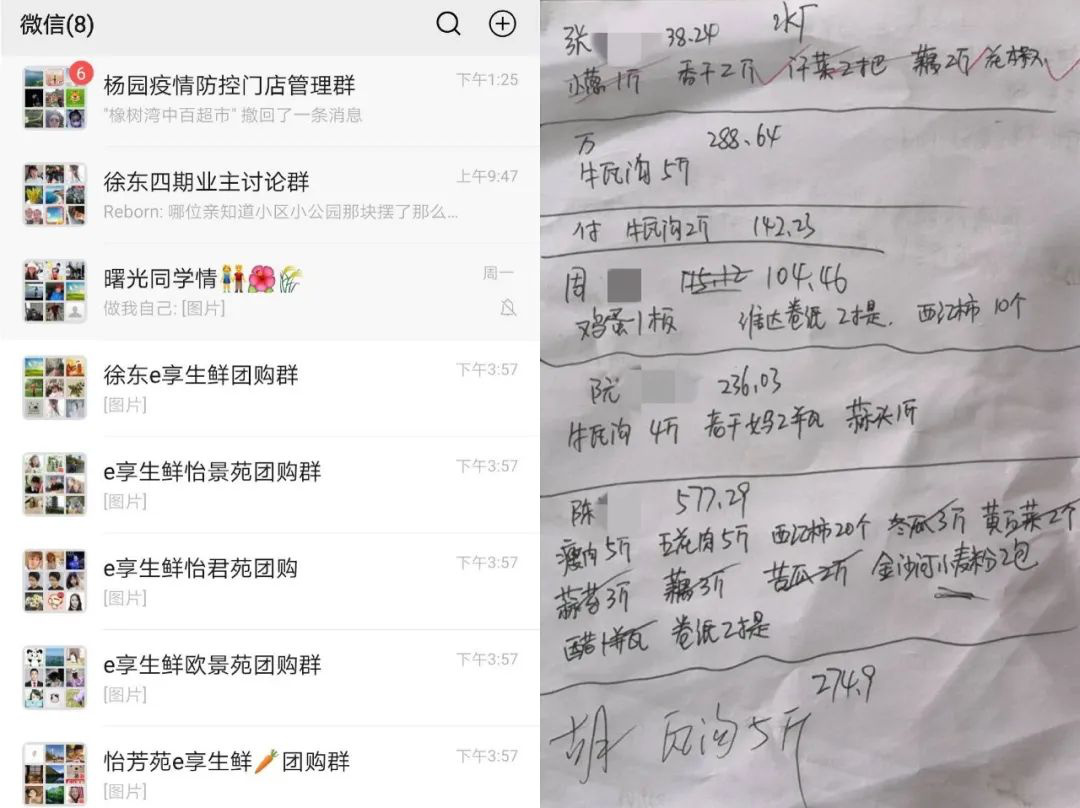 微信(8)
6
杨园疫情防控门店管理群
下午1:25
"橡树湾中百超市" 撤回了一条消息
徐东四期业主讨论群
上午9:47
Reborn: 哪位亲知道小区小公园那块摆了那么…
曙光同学情👫🌺🌾
周一
做我自己: [图片]
徐东e享生鲜团购群
下午3:57
[图片]
e享生鲜怡景苑团购群
下午3:57
[图片]
e享生鲜怡君苑团购
下午3:57
[图片]
e享生鲜欧景苑团购群
下午3:57
[图片]
怡芳苑e享生鲜🥕团购群
下午3:57
[图片]
张 38.24
小葱1斤 香干2斤 汗菜2把 藕2斤 花椒
万 288.64
牛瓦沟5斤
付 牛瓦沟2斤 142.23
周 104.46
鸡蛋1板 维达卷纸2提. 西红柿10个
阮 236.03
牛瓦沟 4斤 蒜头1斤
陈 577.29
瘦肉5斤 五花肉5斤 西红柿20个 冬瓜3斤 黄瓦菜2个
蒜苔3斤 藕3斤 苦瓜2斤 金沙河小麦粉2包
醋1瓶 卷纸2提
274.9
胡 瓦沟5斤